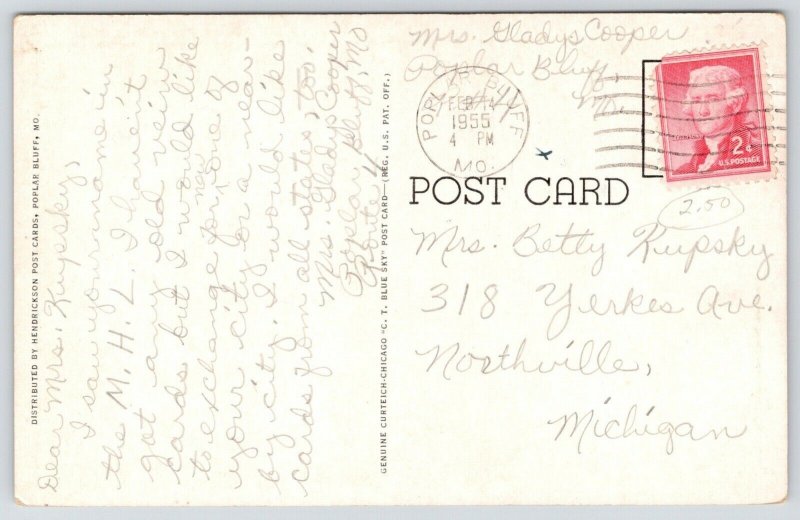 Mrs. Gladys Cooper
Poplar Bluff,
Mo.
POPLAR BLUFF
FEB
1955
4 PM
MO.
2¢
U.S. POSTAGE
POST CARD
2.50
Mrs. Betty Kupsky
318 Yerkes Ave.
Northville,
Michigan
Dear Mrs. Kupsky,
I saw your name in
the M. H. L. I haven't
got any old veiw
cards but I would like
to exchange for one of
your city or a near-
by city. I would like
cards from all states, too.
Mrs. Gladys Cooper
Route 4
Poplar Bluff, Mo
DISTRIBUTED BY HENDRICKSON POST CARDS, POPLAR BLUFF, MO.
GENUINE CURTEICH-CHICAGO "C. T. BLUE SKY" POST CARD—(REG. U. S. PAT. OFF.)